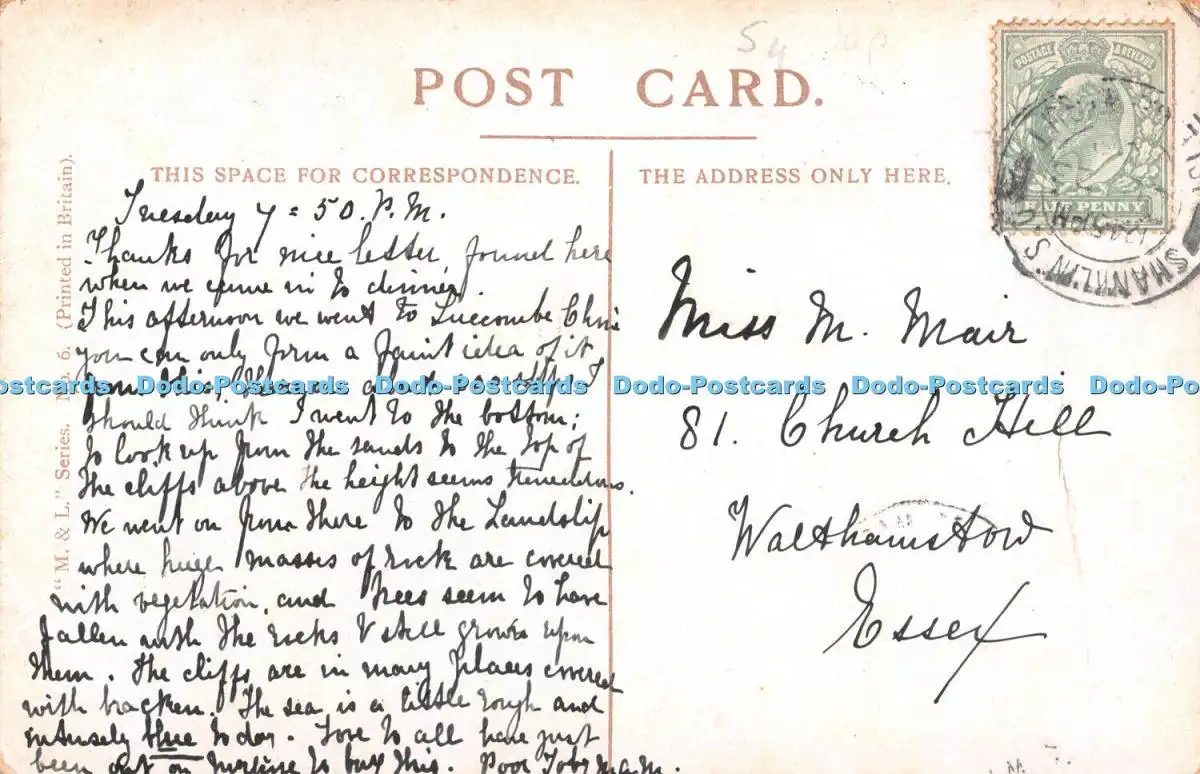 54
POST CARD.
POSTAGE & REVENUE
HALF PENNY
SHANKLIN S.O
12.45PM
THIS SPACE FOR CORRESPONDENCE.
THE ADDRESS ONLY HERE.
"M. & L." Series. No. 6. (Printed in Britain).
Tuesday 7=50.P.M.
Thanks for nice letter found here
when we came in to dinner.
This afternoon we went to Luccombe Chine
you can only form a faint idea of it
from this,
should think I went to the bottom;
To look up from the sands to the top of
the cliffs above the height seems tremendous.
We went on from there to the Landslip
where huge masses of rock are covered
with vegetation, and trees seem to have
fallen with the rocks & still grows upon
them. The cliffs are in many places covered
with bracken. The sea is a little rough and
intensely blue today. Love to all have just
been out to buy this. Poor Toby
Miss M. Mair
81. Church Hill
Walthamstow
Essex
Dodo-Postcards Dodo-Postcards Dodo-Postcards Dodo-Postcards Dodo-Postcards